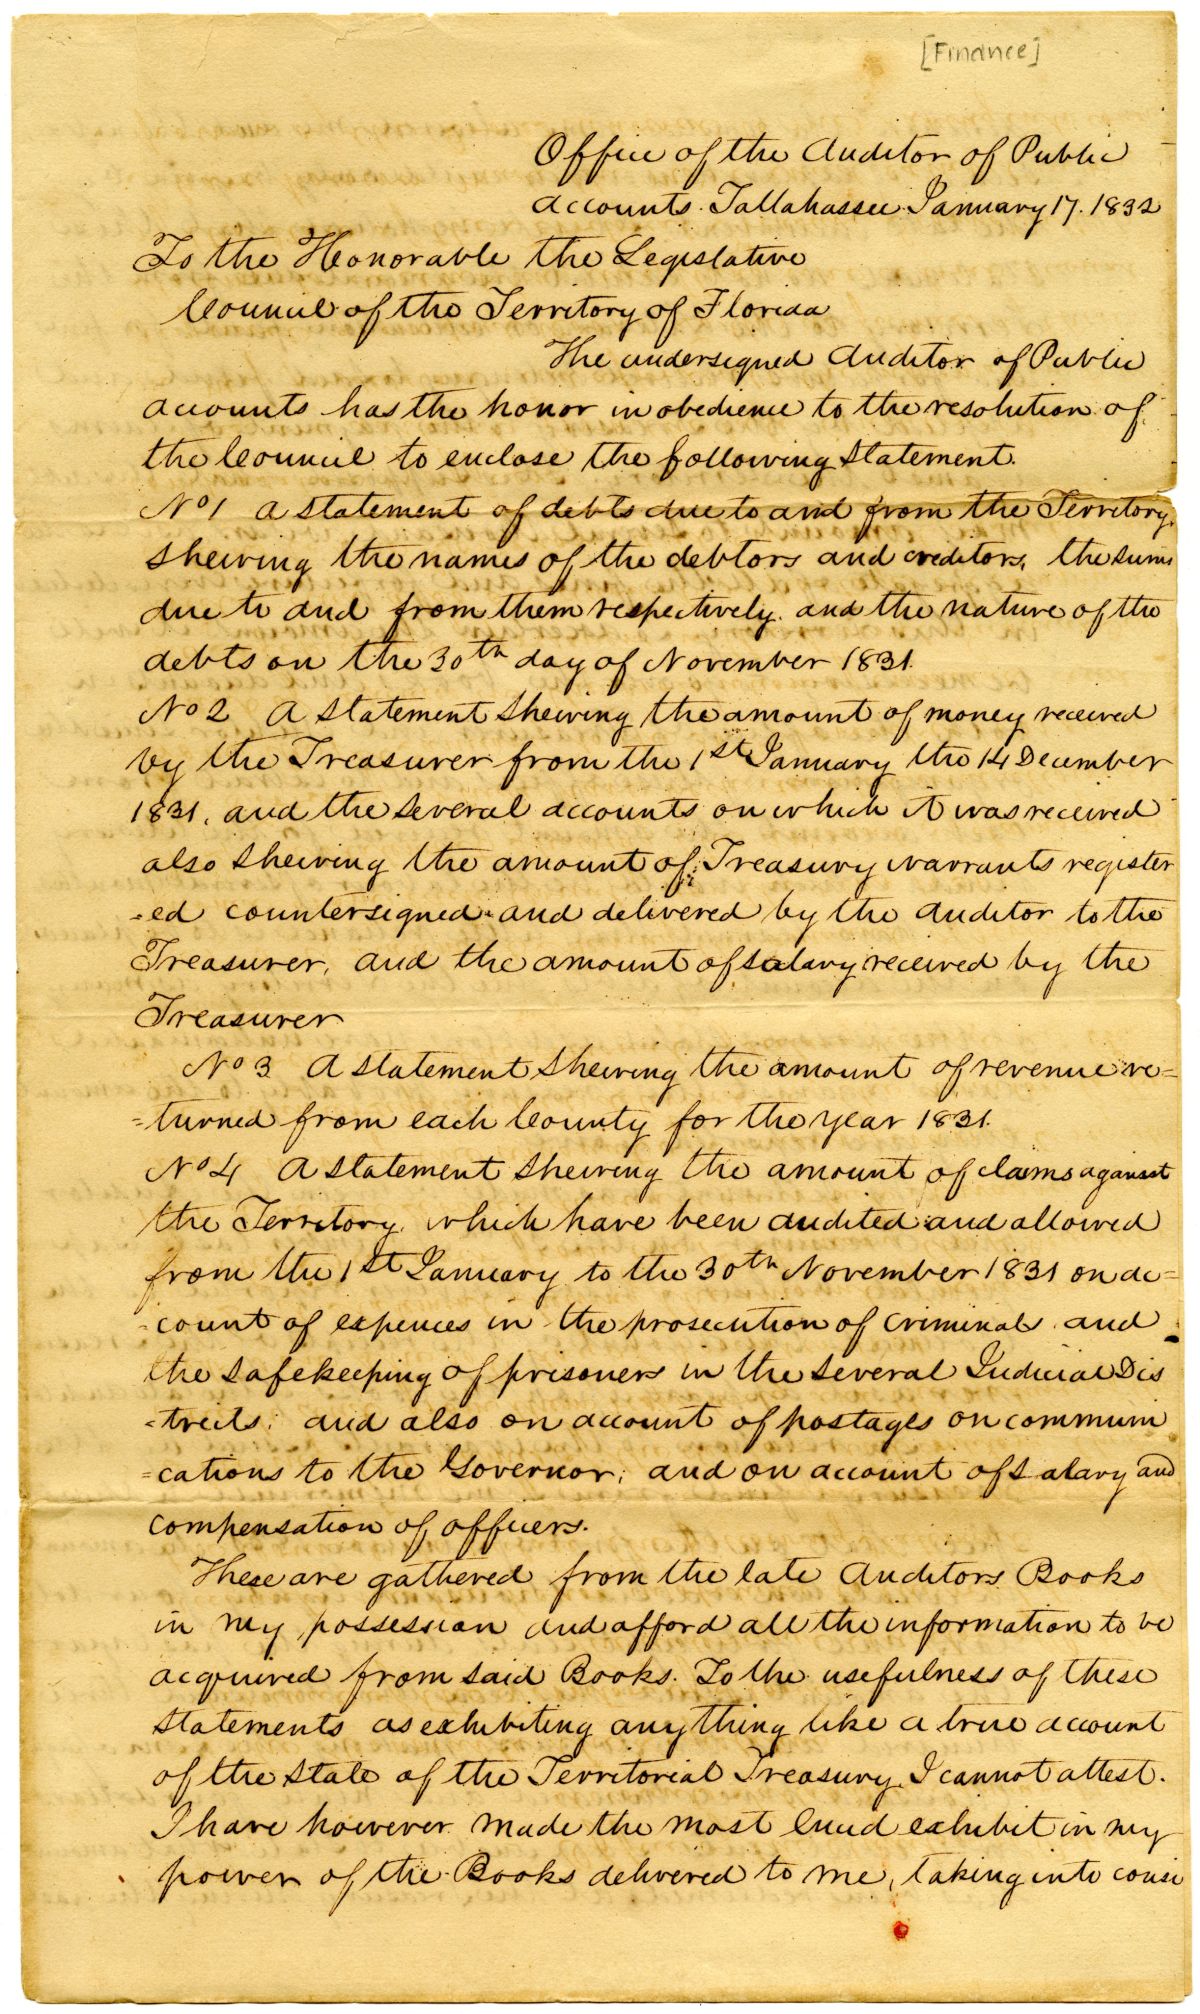 [Finance]
Office of the Auditor of Public
accounts. Tallahassee January 17. 1832
To the Honorable the Legislative
Council of the Territory of Florida
The undersigned Auditor of Public
accounts has the honor in obedience to the resolution of
the Council to enclose the following statement.
No 1 A statement of debts due to and from the Territory,
shewing the names of the debtors and creditors, the sums
due to and from them respectively. and the nature of the
debts on the 30th day of November 1831.
No 2 A statement shewing the amount of money received
by the Treasurer from the 1st January the 14 December
1831, and the several accounts on which it was received
also shewing the amount of Treasury warrants register
-ed countersigned and delivered by the Auditor to the
Treasurer, and the amount of salary received by the
Treasurer
No 3 A statement shewing the amount of revenue re=
=turned from each County for the year 1831.
No 4 A statement shewing the amount of claims against
the Territory, which have been audited and allowed
from the 1st January to the 30th November 1831 on ac=
-count of expences in the prosecution of criminals and
the safekeeping of prisoners in the several Judicial Dis
-trects; and also on account of postages on communi
=cations to the Governor; and on account of salary and
compensation of officers.
These are gathered from the late Auditors Books
in my possession and afford all the information to be
acquired from said Books. To the usefulness of these
statements as exhibiting anything like a true account
of the state of the Territorial Treasury, I cannot attest.
I have however made the most lucid exhibit in my
power of the Books delivered to me, taking into consi